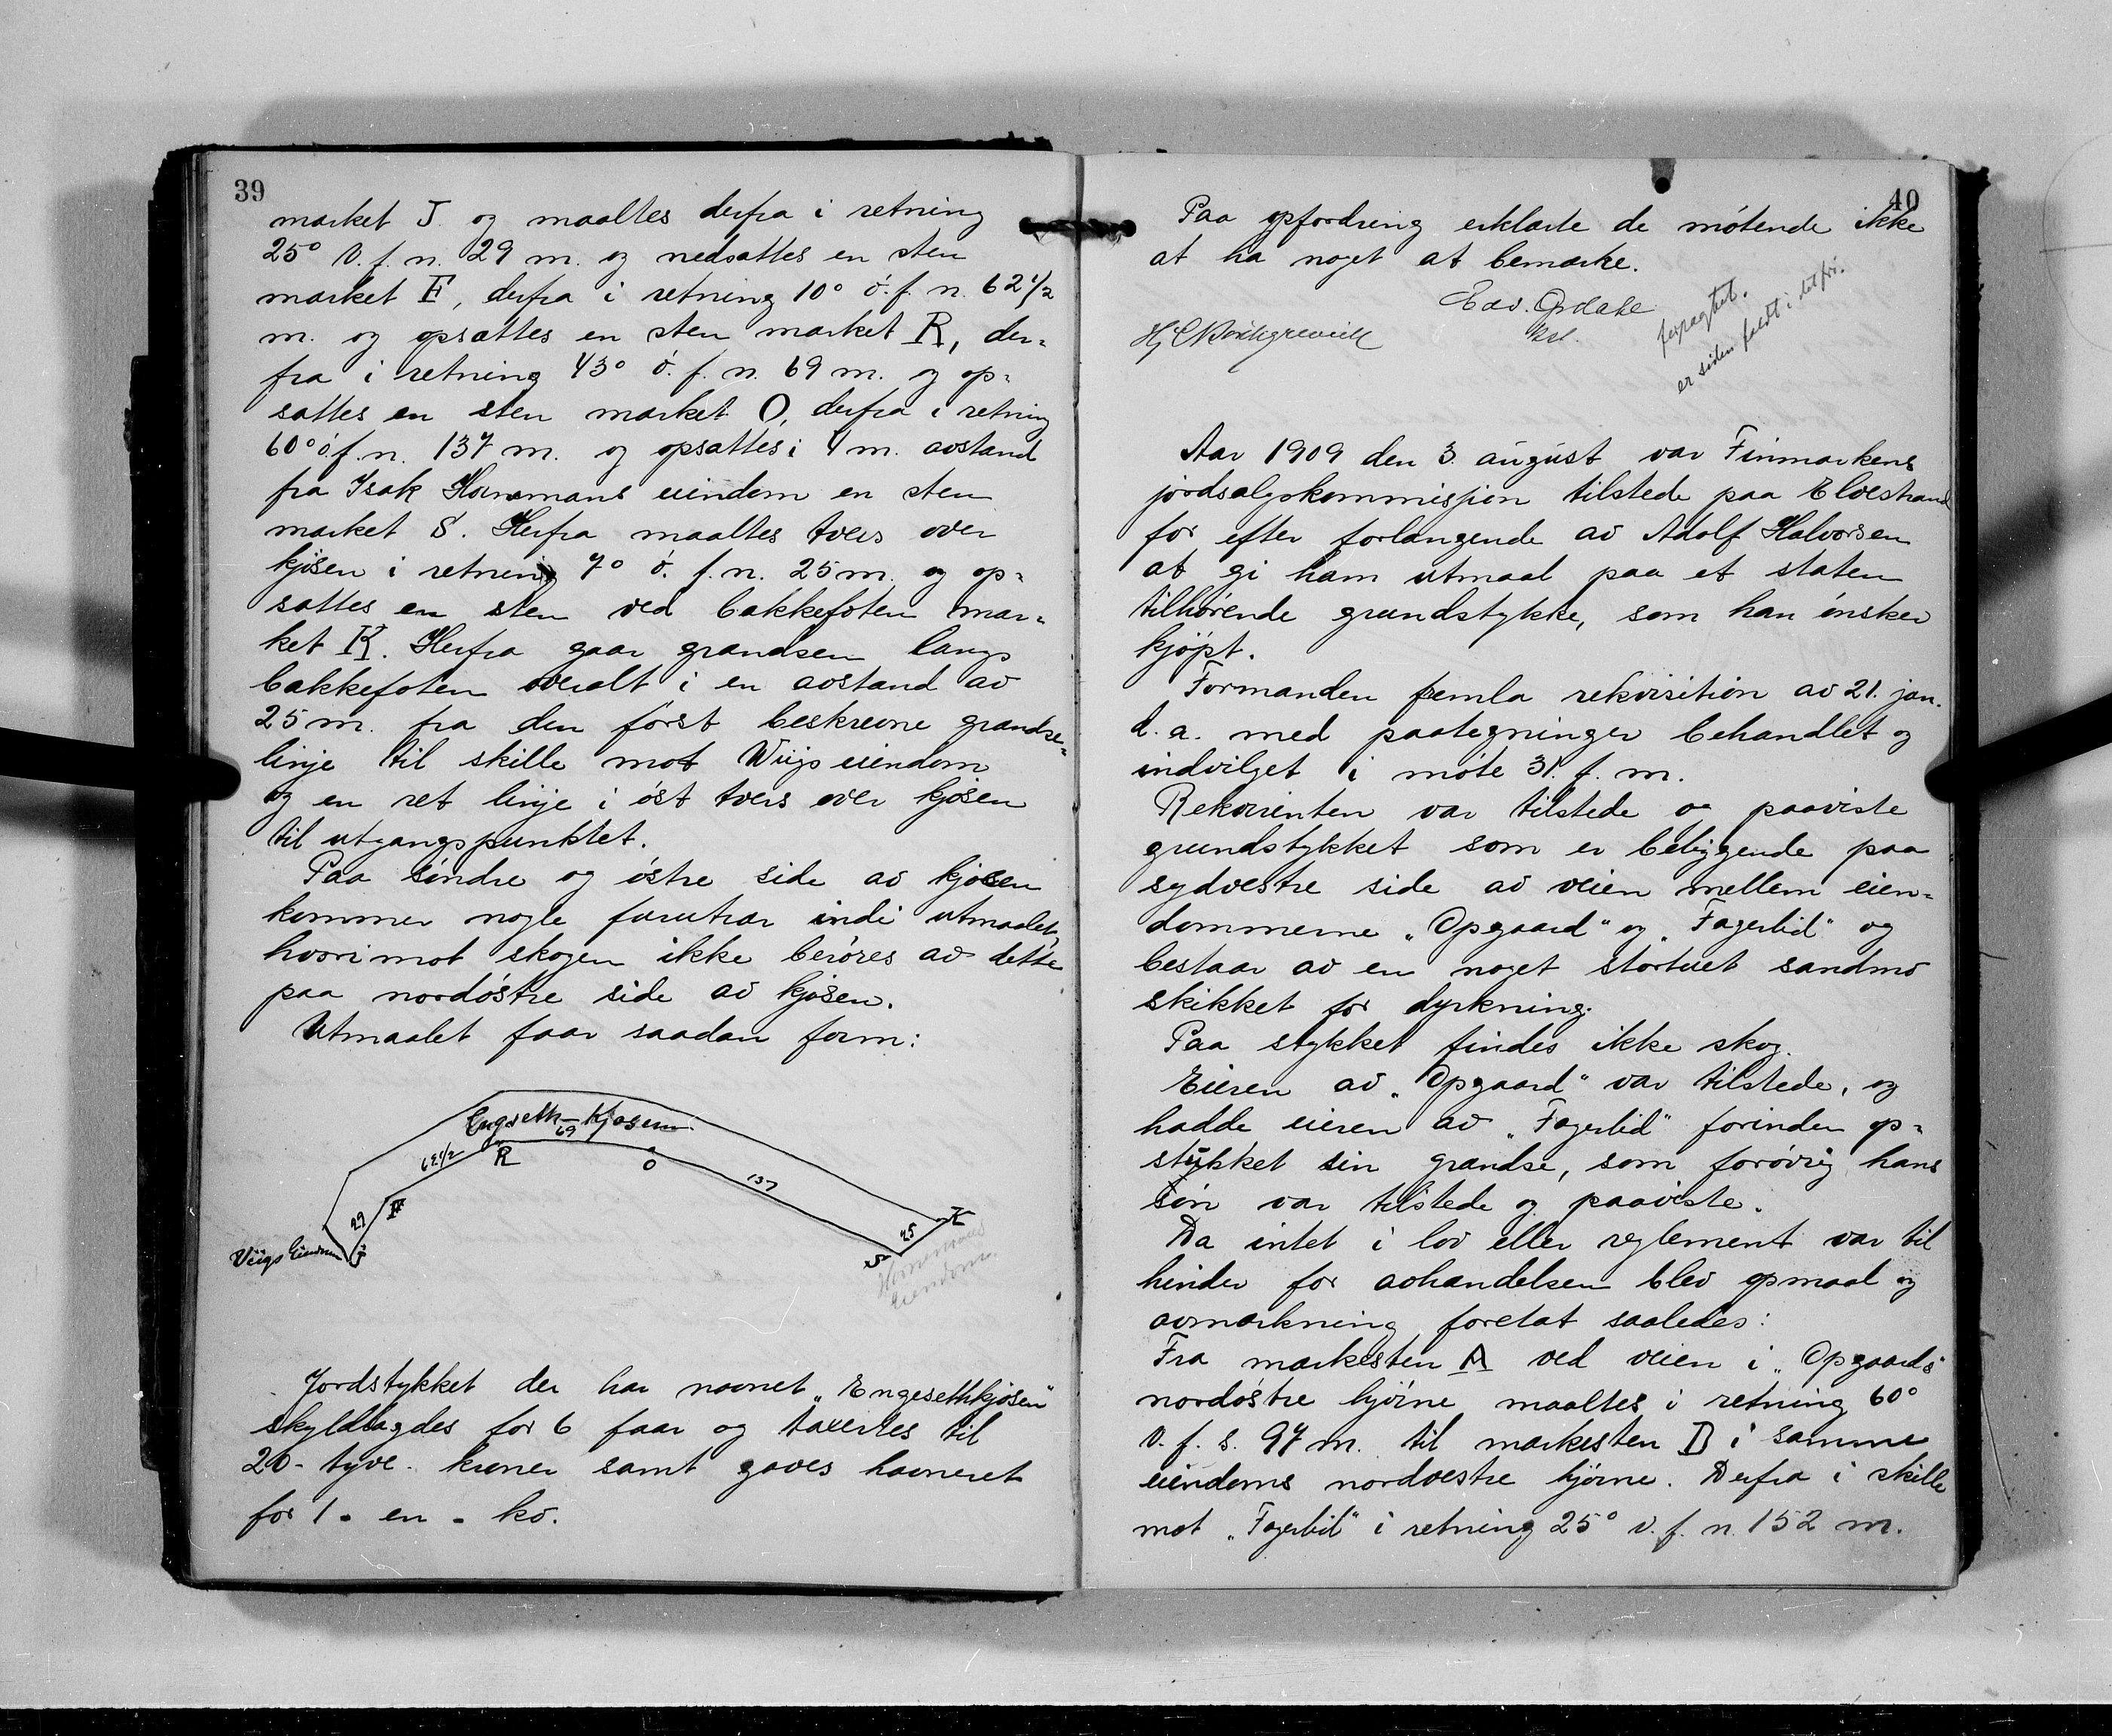 39
mærket J. og maaltes derfra i retning
25° v. f. n. 29 m. og nedsattes en sten
mærket F, derfra i retning 10° ö. f. n. 62 1/2
m. og opsattes en sten mærket R, der-
fra i retning 43° ö. f. n. 69 m. og op-
sattes en sten mærket O, derfra i retning
60° ö. f. n. 137 m. og opsattes i 4 m. avstand
fra Isak Hornemans eiendom en sten
mærket S. Herfra maaltes tvers over
kjosen i retning 70 ö. f. n. 25 m. og op-
sattes en sten ved bakkefoten mær-
ket K. Herfra gaar grændsen langs
bakkefoten overalt i en avstand av
25 m. fra den först beskrevne grændse-
linje til skille mot Wiigs eiendom
og en ret linje i öst tvers over kjosen
til utgangspunktet.
Paa söndre og östre side av kjosen
kommer nogle furutrær indi utmaalet,
hvorimot skogen ikke beröres av dette
paa nordöstre side av kjosen.
Utmaalet faar saadan form:
Engseth-kjosen
69
62 1/2
R
O
137
29
F
25
K
Wiigs Eiendom
J
S
Hornemans
Eiendom.
Jordstykket der har navnet „Engesethkjosen"
skyldlagdes for 6 faar og taxertes til
20 - tyve - kroner samt gaves havneret
for 1 - en - ko.
40
Paa opfordring erklærte de mötende ikke
at ha noget at bemærke.
Edv.
forpagtet.
er siden faldt i det fri.
Aar 1909 den 3. august var Finmarkens
jordsalgskommisjon tilstede paa Elvestrand
for efter forlangende av Adolf Halvorsen
at gi ham utmaal paa et staten
tilhörende grundstykke, som han önsker
kjöpt.
Formanden fremla rekvisition av 21. jan.
d. a. med paategninger behandlet og
indvilget i möte 31. f. m.
Rekvirenten var tilstede og paaviste
grundstykket som er beliggende paa
sydvestre side av veien mellem eien-
dommerne „Opgaard" og „Fagerlid" og
bestaar av en noget stortuet sandmo
skikket for dyrkning.
Paa stykket findes ikke skog.
Eieren av „Opgaard" var tilstede, og
hadde eieren av „Fagerlid" forinden op-
stykket sin grændse, som forövrig hans
sön var tilstede og paaviste.
Da intet i lov eller reglement var til
hinder for avhandelsen blev opmaal og
avmærkning foretat saaledes:
Fra merkesten A ved veien i „Opgaards"
nordöstre hjörne maaltes i retning 60°
v. f. s. 97 m. til merkesten D i samme
eiendoms nordvestre hjörne. Derfra i skille
mot „Fagerlid" i retning 25° v. f. n. 152 m.